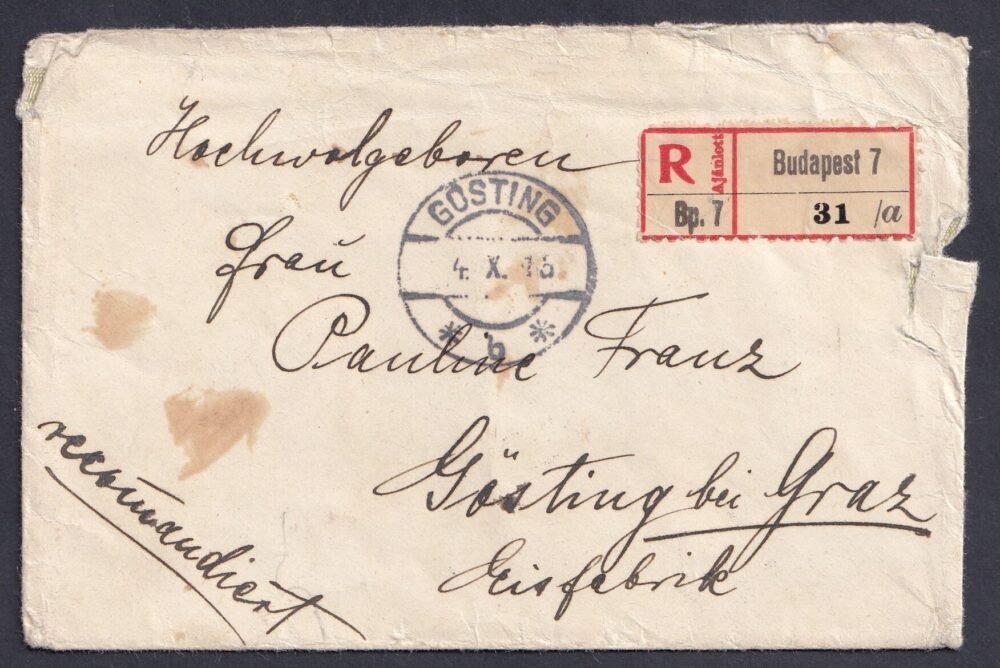 Hochwolgeboren
Frau
Pauline Franz
Gösting bei Graz
Eisfabrik
recommandiert
R
Ajánlott
Budapest 7
Bp. 7
31 /a
GÖSTING
4. X. 16
* b *